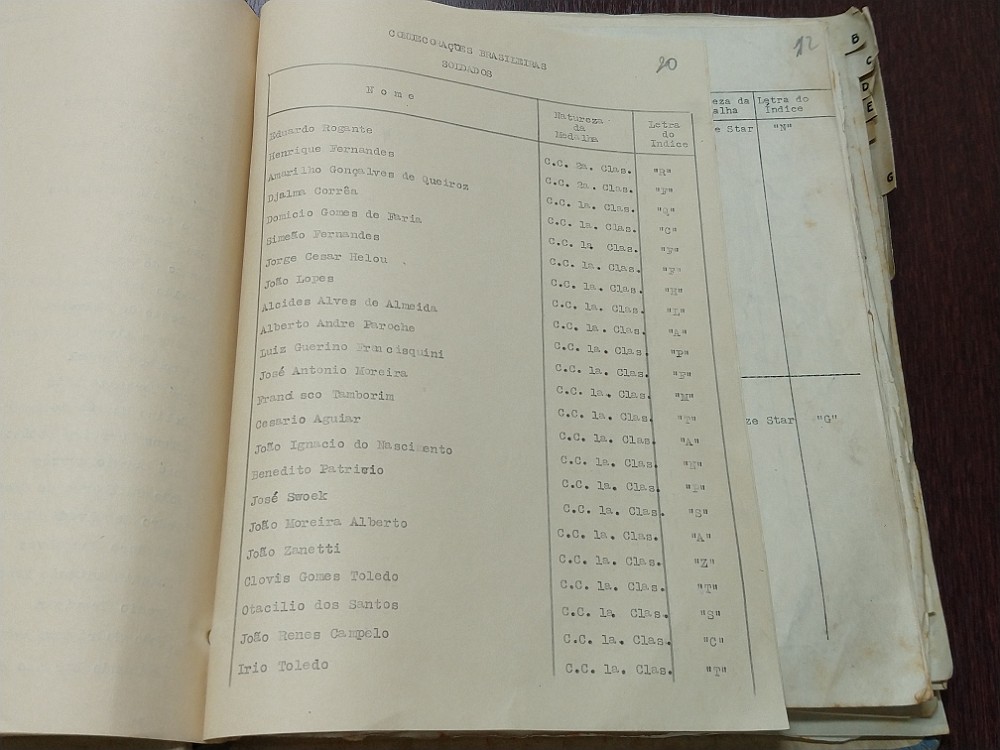 CONDECORAÇÕES BRASILEIRAS
SOLDADOS
20
Nome
Natureza da Medalha
Letra do Índice
Eduardo Rogante C.C. 2a. Clas. "R"
Henrique Fernandes C.C. 2a. Clas. "F"
Amarilho Gonçalves de Queiroz C.C. 1a. Clas. "Q"
Djalma Corrêa C.C. 1a. Clas. "C"
Domicio Gomes de Faria C.C. 1a. Clas. "F"
Simeão Fernandes C.C. 1a. Clas. "F"
Jorge Cesar Helou C.C. 1a. Clas. "H"
João Lopes C.C. 1a. Clas. "L"
Alcides Alves de Almeida C.C. 1a. Clas. "A"
Alberto Andre Paroche C.C. 1a. Clas. "P"
Luiz Guerino Francisquini C.C. 1a. Clas. "F"
José Antonio Moreira C.C. 1a. Clas. "M"
Francisco Tamborim C.C. 1a. Clas. "T"
Cesario Aguiar C.C. 1a. Clas. "A"
João Ignacio do Nascimento C.C. 1a. Clas. "N"
Benedito Patricio C.C. 1a. Clas. "P"
José Swoek C.C. 1a. Clas. "S"
João Moreira Alberto C.C. 1a. Clas. "A"
João Zanetti C.C. 1a. Clas. "Z"
Clovis Gomes Toledo C.C. 1a. Clas. "T"
Otacilio dos Santos C.C. 1a. Clas. "S"
João Renes Campelo C.C. 1a. Clas. "C"
Irio Toledo C.C. 1a. Clas. "T"
12
eza da
alha
Letra do
Índice
e Star "N"
ze Star "G"
B
C
D
E
G